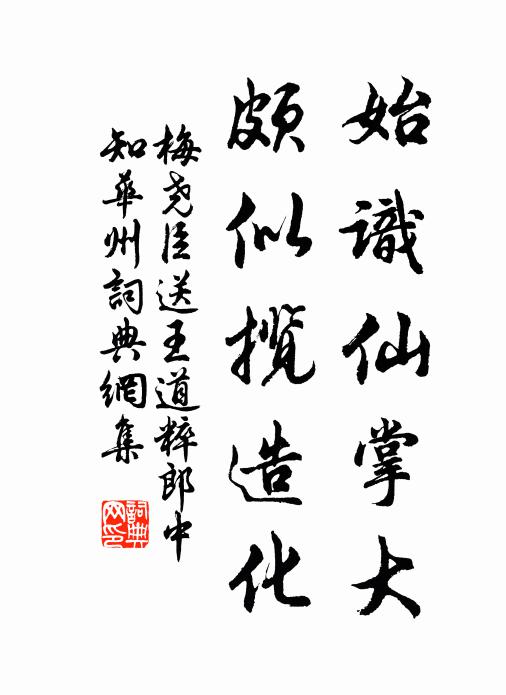 始識仙掌大
頗似揽造化
梅尧臣送王道粹郎中
知華州詞典網集
詞典
网印